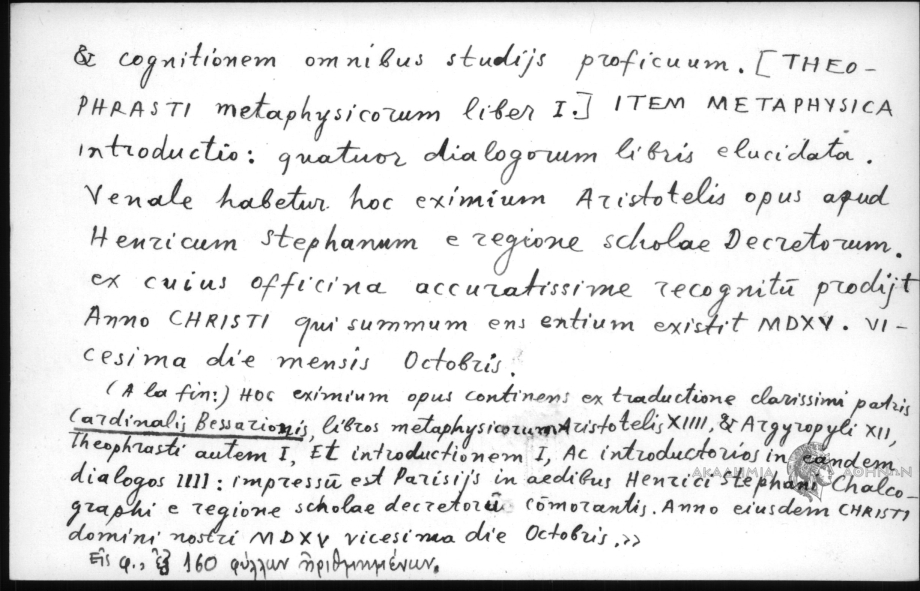 & cognitionem omnibus studijs proficuum. [THEO-
PHRASTI metaphysicorum liber I.] ITEM METAPHYSICA
introductio: quatuor dialogorum libris elucidata.
Venale habetur hoc eximium Aristotelis opus apud
Henricum Stephanum e regione scholae Decretorum.
ex cuius officina accuratissime recognitū prodijt
Anno CHRISTI qui summum ens entium existit MDXV. VI-
cesima die mensis Octobris.
(A la fin:) Hoc eximium opus continens ex traductione clarissimi patris
Cardinalis Bessarionis, libros metaphysicorum Aristotelis XIIII, & Argyropyli XII,
Theophrasti autem I, Et introductionem I, Ac introductorios in eandem
dialogos IIII: impressū est Parisijs in aedibus Henrici Stephani Chalco-
graphi e regione scholae decretorū cōmorantis. Anno eiusdem CHRISTI
domini nostri MDXV vicesima die Octobris.»
Εἰς φ., ἐξ 160 φύλλων ἠριθμημένων.
ΑΚΑΔΗΜΙΑ ΑΘΗΝΩΝ